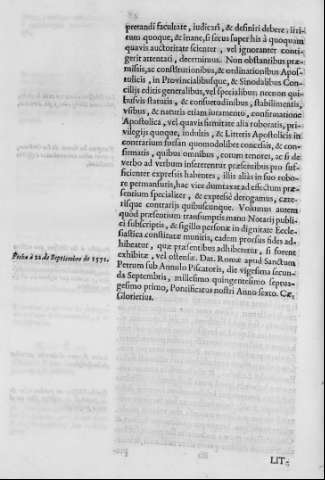 pretandi facultate, iudicari, & definiri debere; irri-
tum quoque, & inane, si secus super his à quoquam
quavis auctoritate scienter, vel ignoranter conti-
gerit attentari, decernimus. Non obstantibus præ-
missis, ac constitutionibus, & ordinationibus Apos-
tolicis, in Provincialibusque, & Synodalibus Con-
cilijs editis generalibus, vel specialibus necnon qui-
busvis statutis, & consuetudinibus, stabilimentis,
vsibus, & naturis etiam iuramento, confirmatione
Apostolica, vel quavis firmitate alia roboratis, pri-
vilegijs quoque, indultis, & Litteris Apostolicis in
contrarium forsan quomodolibet concessis, & con-
firmatis, quibus omnibus, eorum tenores, ac si de
verbo ad verbum insererentur præsentibus pro suf-
ficienter expressis habentes, illis aliàs in suo robo-
re permansuris, hac vice dumtaxat ad effectum præ-
sentium specialiter, & expressè derogamus, cæte-
risque contrarijs quibuscumque. Volumus autem
quòd præsentium transumptis manu Notarij publi-
ci subscriptis, & sigillo personæ in dignitate Eccle-
siastica constitutæ munitis, eadem prorsus fides ad-
hibeatur, quæ præsentibus adhiberetur, si forent
exhibitæ, vel ostensæ. Dat. Romæ apud Sanctum
Fecha à 22 de Septiembre de 1571.
Petrum sub Annulo Piscatoris, die vigesima secun-
da Septembris, millesimo quingentesimo septua-
gesimo primo, Pontificatus nostri Anno sexto. Cæ.
Glorierius.
LIT-